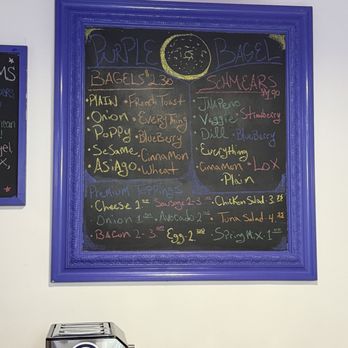 PURPLE BAGEL
BAGELS $2.30
• PLAIN • French Toast
• Onion • EVERYTHING
• Poppy • BlueBerry
• Sesame • Cinnamon
• ASiAGO • Wheat
SCHMEARS
• JALAPENO
• Veggie • Strawberry
• Dill • BlueBerry
• Everything
• Cinnamon • LOX
• Plain
Premium Toppings
• Cheese 1 • Sausage 2 • Chicken Salad • 3
• Onion 1 • Avocado • 2 • Tuna Salad • 4
• Bacon 2 • Egg • 2 • Spring Mix • 1